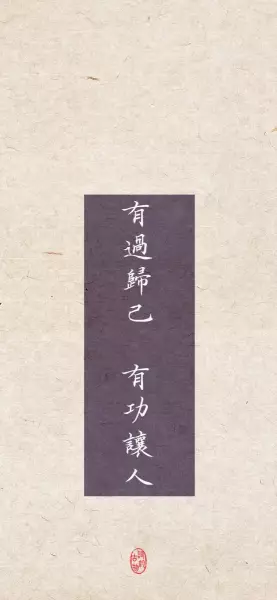 有過歸己 有功讓人